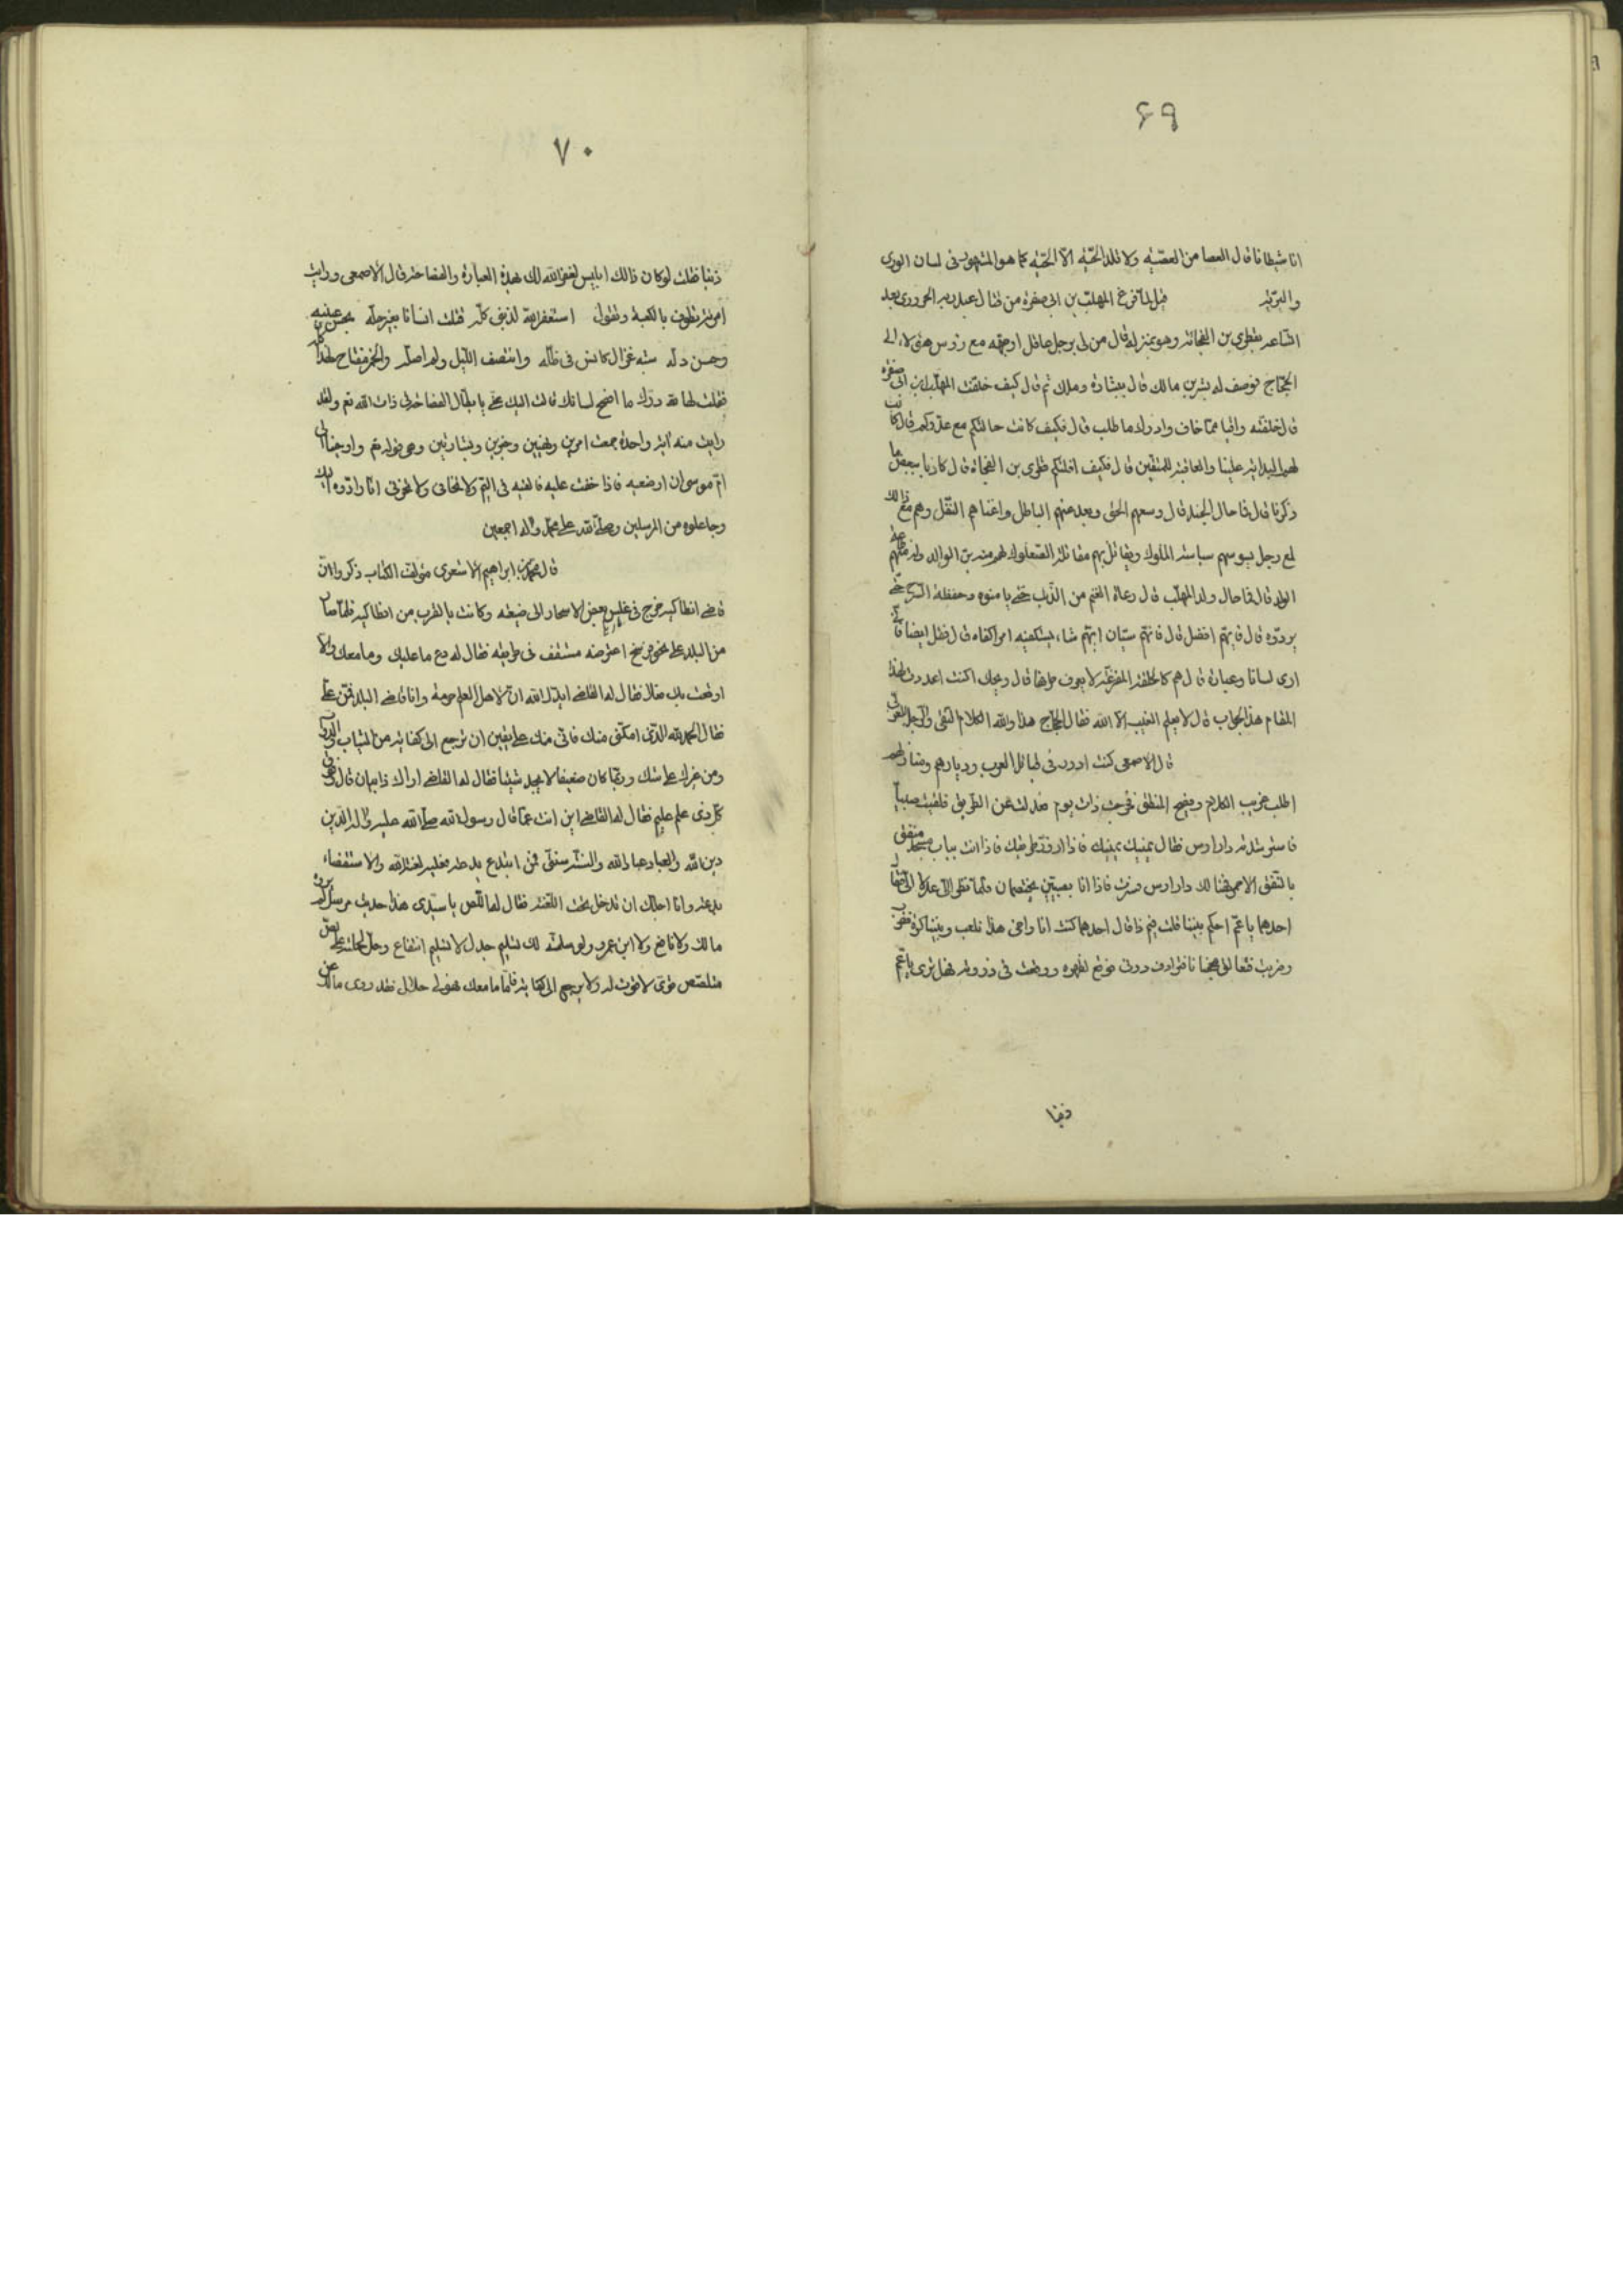 ۶۹
انا شيطانا قال العصا من العصيّه ولا تلد الحيّة الا الحيّه كما هو المشهور فى لسان الورى
والبريّه قيل لما فرغ المهلّب بن ابى صفرة من قتال عبد ربه الحرورى بعد
الشاعر بقطرى بن الفجائه وهو بمنزله قال من لى برجل عاقل اوجهه مع رؤس هؤلاء الى
الحجّاج فوصف له بشر بن مالك قال بشارة وملك ثم قال كيف خلّفت المهلّب بن ابى صفره
قال خلفته وافيا ممّا خاف وادراك ما طلب قال فكيف كانت حالتكم مع عدوكم قال كانت
لهم البداية علينا والعاقبة للمتقين قال فكيف افلتكم قطرى بن الفجاة قال كادنا ببعض ما
ذكرنا قال فما حال الجند قال وسعهم الحق وبعد عنهم الباطل واغناهم النقل وهم مع ذالك
لمع رجل يسوسهم سياسة الملوك ويقاتل بهم مقاتلة الصعلوك لهم منه بر الوالد وله منهم طاعة
الولد قال فما حال ولد المهلّب قال رعاة الغنم من الذئب حتى يامنوه وحفظة السرح حتى
يردّوه قال فايهم افضل قال فانهم سيّان ايهم شاء يستكفيه امرا كفاه قال فقل ايضا فانى
ارى لسانا وعبارة قال هم كالحلقة المفرغة لا يعرف طرفها قال ويحك اكنت اعددت لهذا
المقام هذا الجواب قال لا يعلم الغيب الا الله فقال الحجاج هذا والله الكلام النقى والرجل التقى
قال الاصمعى كنت ادور فى قبائل العرب وديارهم ومنازلهم
اطلب غريب الكلام وفصيح المنطق فخرجت ذات يوم فعدلت عن الطريق فلقيت صبيّا
فاسترشدته دار اوس فقال يمينك يمينك فاذا لا فقد طريقك فاذا انت بباب مسجد منقق
بالشقق الاحمر فهنا لك دار اوس فسرت فاذا انا بصبيّين يختصمان فلما نظرا الى عدلا الى فقال
احدهما يا عمّ احكم بيننا قلت فيم ذا قال احدهما كنت انا واخى هذا نلعب وبيننا كرة
وضربت
ذنبا
۷۰
ذنبا فقلت لو كان ذالك ابليس لغفر الله لك بهذه العبارة والفصاحة قال الاصمعى ورايت
امرئة تطوف بالكعبة وتقول استغفر الله لذنبى كلّه قتلت انسانا بغير حلّه بحسن عينيه
وحسن دلّه شبه غزال كانس فى ظلّه وانتصف الليل ولم اصلّه والخمر مفتاح لهذا كلّه
فقلت لها لله درّك ما افصح لسانك قالت اليك عنّى يا بطّال الفصاحة فى ذات الله نعم ولقد
رايت منه اية واحدة جمعت امرين ونهيين وخبرين وبشارتين وهى قوله تع واوحينا الى
ام موسى ان ارضعيه فاذا خفت عليه فالقيه فى اليم ولا تخافى ولا تحزنى انا رادّوه اليك
وجاعلوه من المرسلين وصلّى الله على محمّد واله اجمعين
قال محمّد بن ابراهيم الاشعرى مؤلف الكتاب ذكروا ان
قاضى انطاكيه خرج فى غلس بعض الاسحار الى ضيعته وكانت بالقرب من انطاكيه فلمّا صار
من البلد على نحو فرسخ اعترضه مشقف فى طريقه فقال له دع ما عليك وما معك والا
اوقعت بك فقال له القاضى ايدك الله ان لاهل العلم حرمة وانا قاضى البلد فمنّ علىّ
فقال الحمد لله الذى امكننى منك فانى منك على يقين ان ترجع الى كفاية من الثياب والدواب
ومن غيرك على شك وربما كان ضعيفا لا يجد شيئا فقال له القاضى اراك ذابيان قال وفوق
كل ذى علم عليم فقال له القاضى اين انت عمّا قال رسول الله صلى الله عليه واله الدين
دين الله والعباد عباد الله والسنّة سنتى فمن ابتدع بدعة فعليه لعنة الله والاستقصاء
بدعة وانا اجلك ان تدخل تحت اللعنة فقال له اللّص يا سيّدى هذا حديث مرسل لم يروه
مالك ولا نافع ولا ابن عمر ولو سلمته لك تسليم جدل لا تسليم انتفاع وحلّ الجائه على لصّ
متلصّص قوى لا قوت له ولا يرجع الى كفاية فامّا ما معك فهو لى حلال فقد روى مالك عن